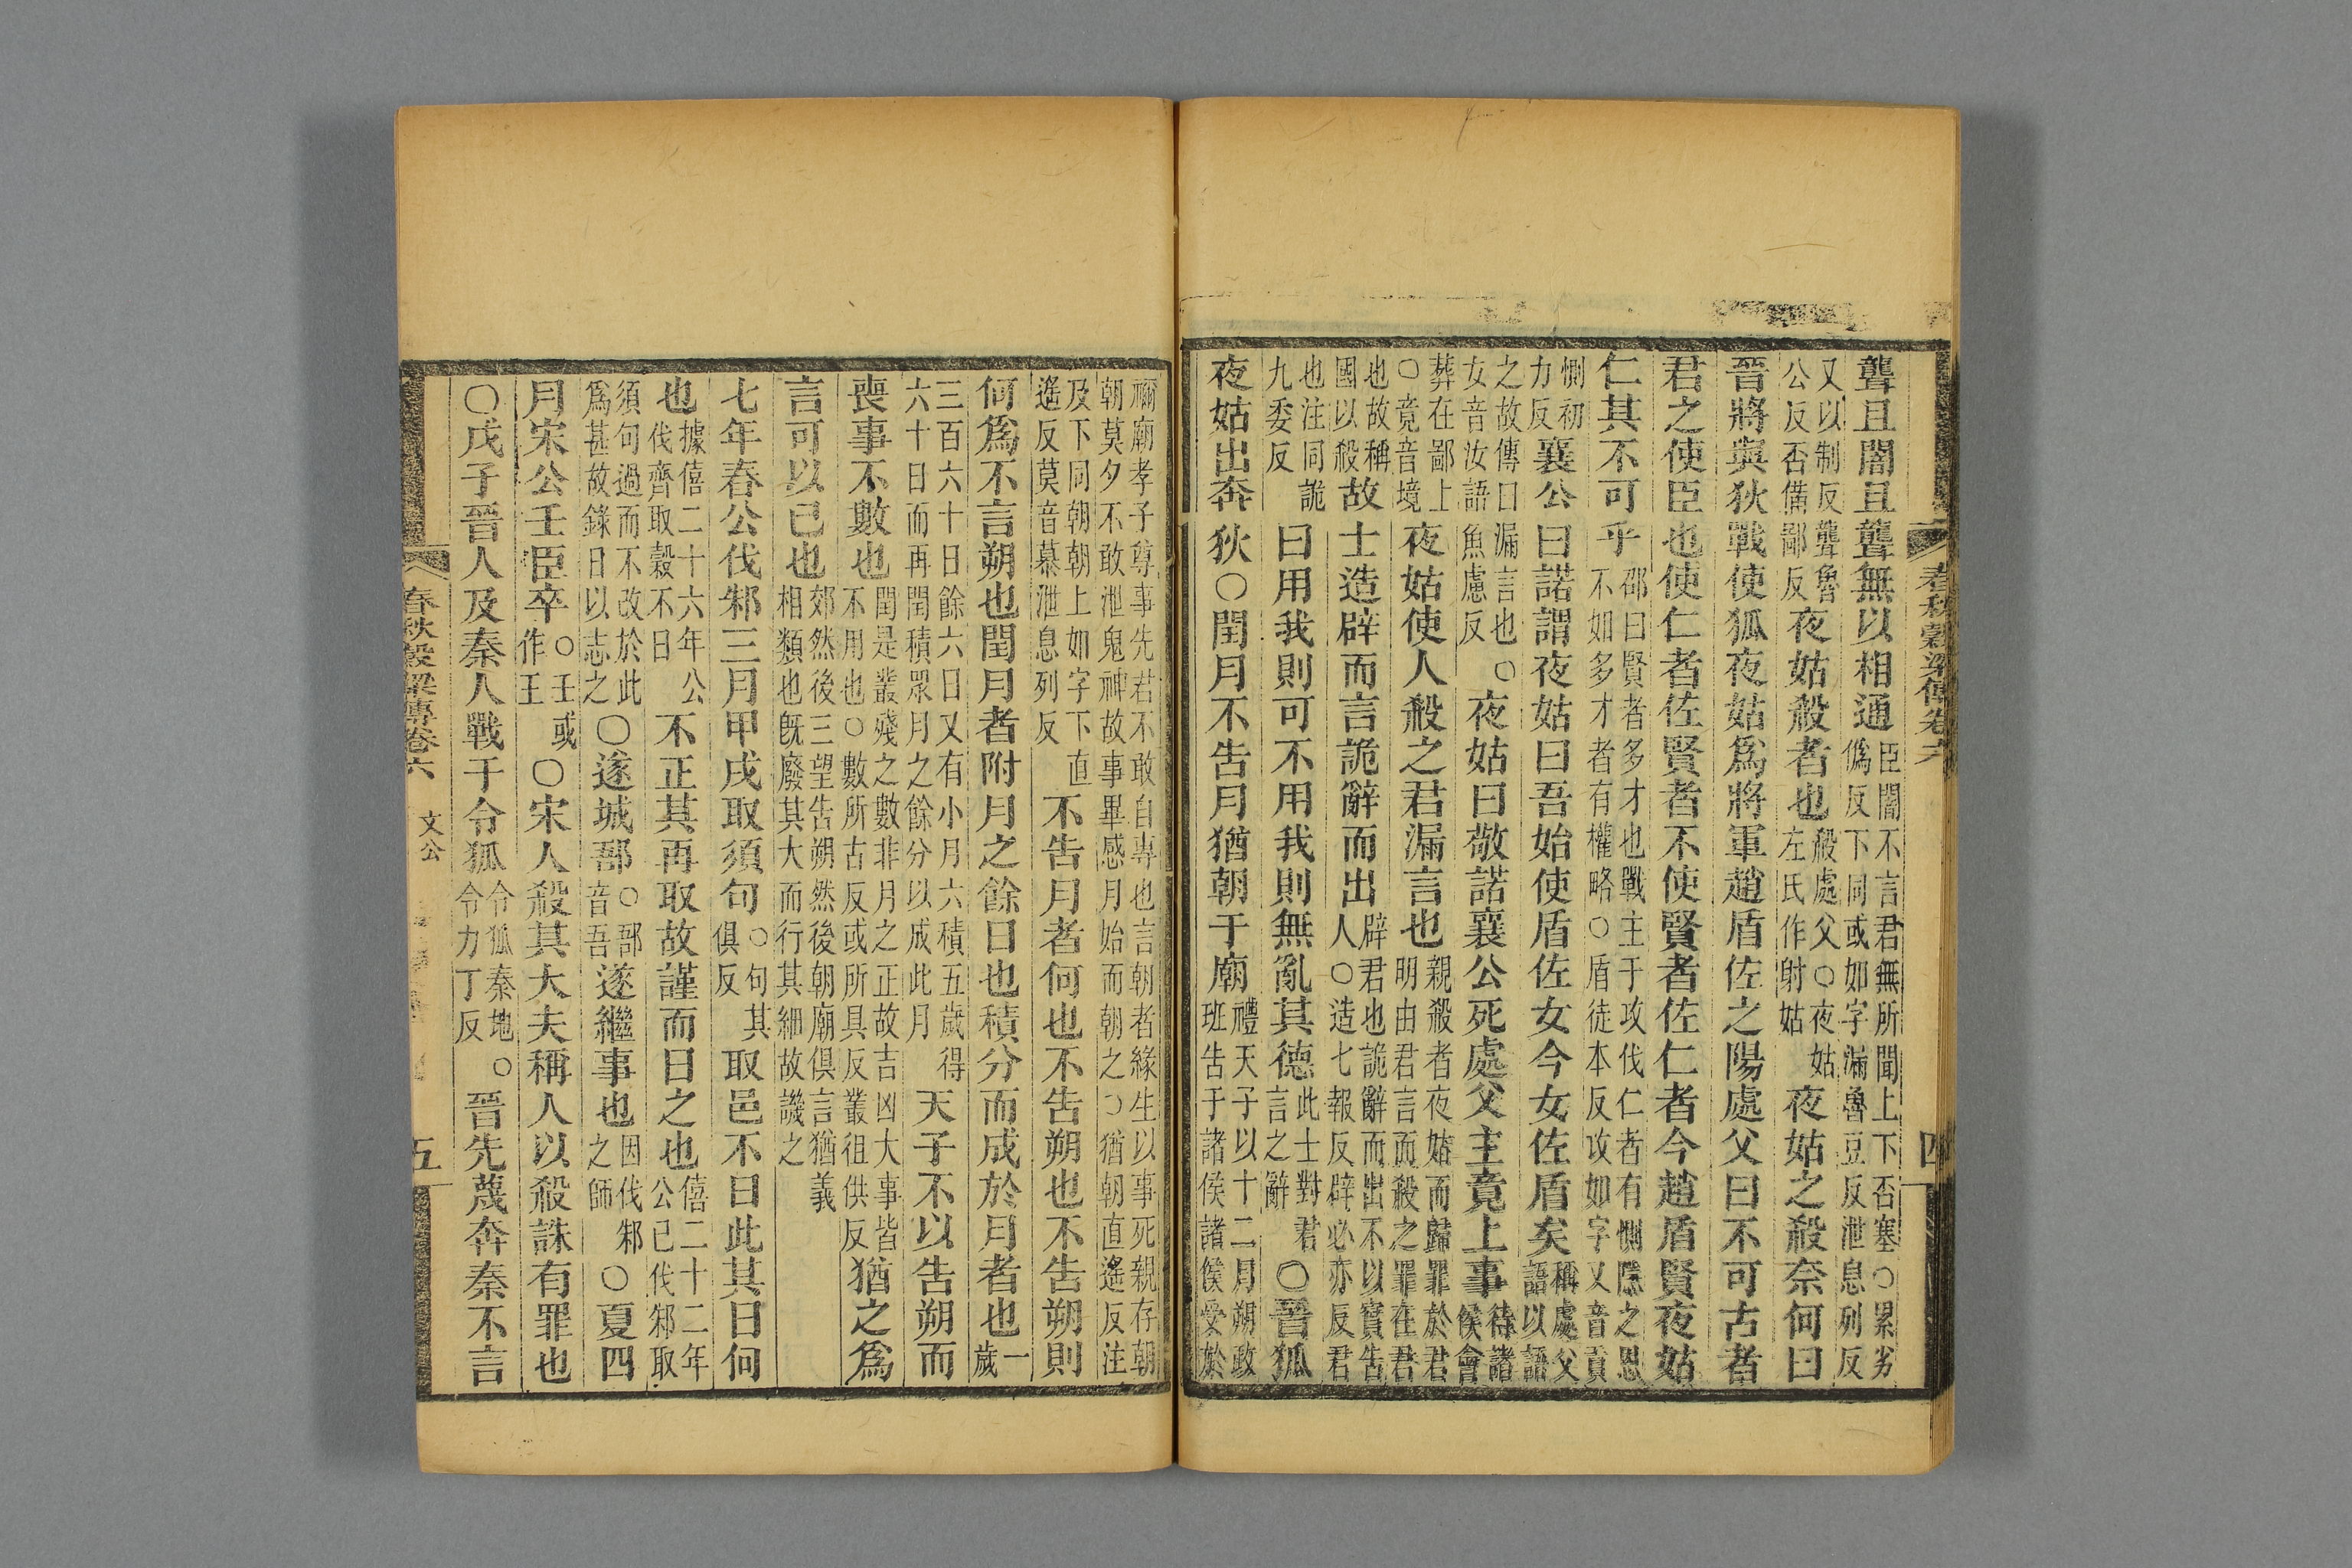 春秋穀梁傳卷六 四
聾且闇且聾無以相通臣闇不言君無所聞上下否塞○累劣僞反下同或如字漏魯豆反泄息列反
又以制反聾魯公反否備鄙反夜姑殺者也殺處父○夜姑左氏作射姑夜姑之殺奈何曰
晉將與狄戰使狐夜姑爲將軍趙盾佐之陽處父曰不可古者
君之使臣也使仁者佐賢者不使賢者佐仁者今趙盾賢夜姑
仁其不可乎邵曰賢者多才也戰主于攻伐仁者有惻隱之恩不如多才者有權略○盾徒本反攻如字又音貢
惻初力反襄公曰諾謂夜姑曰吾始使盾佐女今女佐盾矣稱處父語以語
之故傳曰漏言也○女音汝語魚慮反夜姑曰敬諾襄公死處父主竟上事待諸侯會
葬在鄙上○竟音境夜姑使人殺之君漏言也親殺者夜姑而歸罪於君明由君言而殺之罪在君
也故稱國以殺故士造辟而言詭辭而出辟君也詭辭而出不以實告人○造七報反辟必亦反君
也注同詭九委反曰用我則可不用我則無亂其德此士對君言之辭○晉狐
夜姑出奔狄○閏月不告月猶朝于廟禮天子以十二月朔政班告于諸侯諸侯受於
禰廟孝子尊事先君不敢自專也言朝者緣生以事死親存朝朝莫夕不敢泄鬼神故事畢感月始而朝之○猶朝直遙反注
及下同朝朝上如字下直遙反莫音慕泄息列反不告月者何也不告朔也不告朔則
何爲不言朔也閏月者附月之餘日也積分而成於月者也一歲
三百六十日餘六日又有小月六積五歲得六十日而再閏積眾月之餘分以成此月天子不以告朔而
喪事不數也閏是叢殘之數非月之正故吉凶大事皆不用也○數所古反或所具反叢徂供反猶之爲
言可以已也郊然後三望告朔然後朝廟俱言猶義相類也既廢其大而行其細故譏之
七年春公伐邾三月甲戌取須句○句其俱反取邑不日此其日何
也據僖二十六年公伐齊取穀不日不正其再取故謹而日之也僖二十二年公已伐邾取
須句過而不改於此爲甚故錄日以志之○遂城郚○郚音吾遂繼事也因伐邾之師○夏四
月宋公壬臣卒○壬或作王○宋人殺其大夫稱人以殺誅有罪也
○戊子晉人及秦人戰于令狐令狐秦地○令力丁反晉先蔑奔秦不言
春秋穀梁傳卷六 文公 五